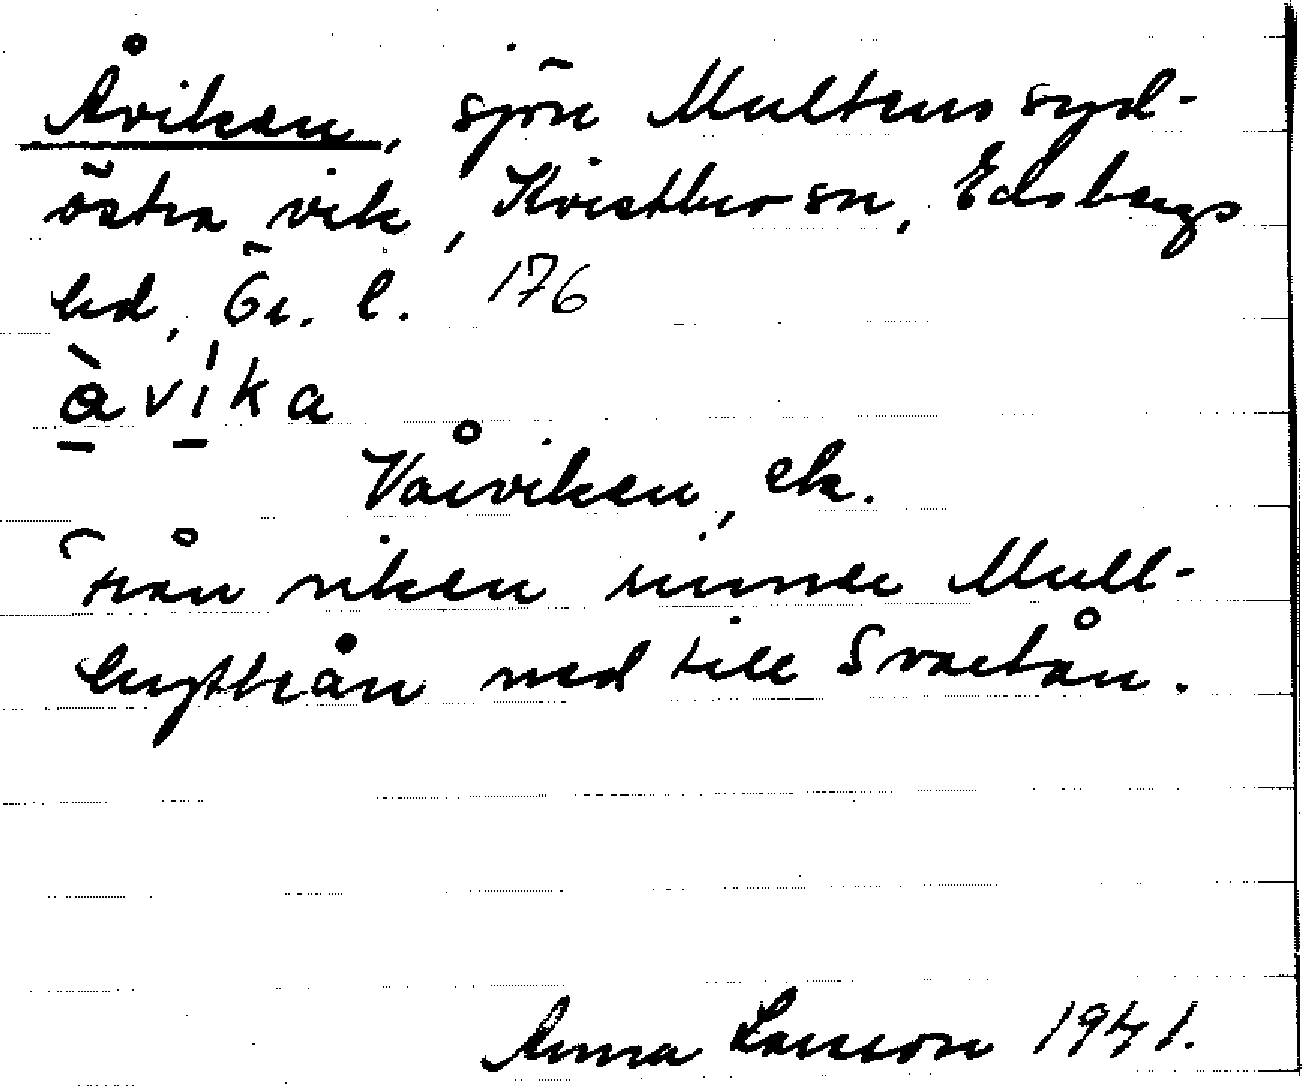 Åviken, sjön Multens syd-
östra vik, Kvistbro sn, Edsbergs
hd, Ör. l. 176
åvika
Våviken, ek.
Från viken rinner Mull-
hyttån ned till Svartån.
Anna Larsson 1941.